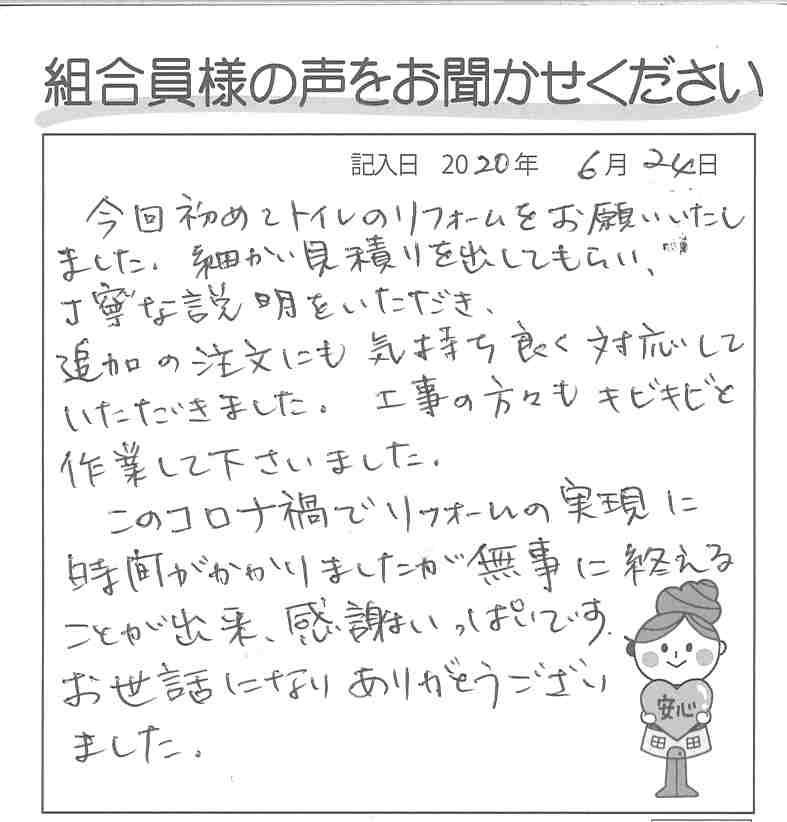 組合員様の声をお聞かせください
記入日 2020年 6月 24日
今回初めてトイレのリフォームをお願いいたし
ました。細かい見積りを出してもらい、
丁寧な説明をいただき、
追加の注文にも気持ち良く対応して
いただきました。工事の方々もキビキビと
作業して下さいました。
このコロナ禍でリフォームの実現に
時間がかかりましたが無事に終える
ことが出来、感謝いっぱいです。
お世話になりありがとうござい
ました。
安心